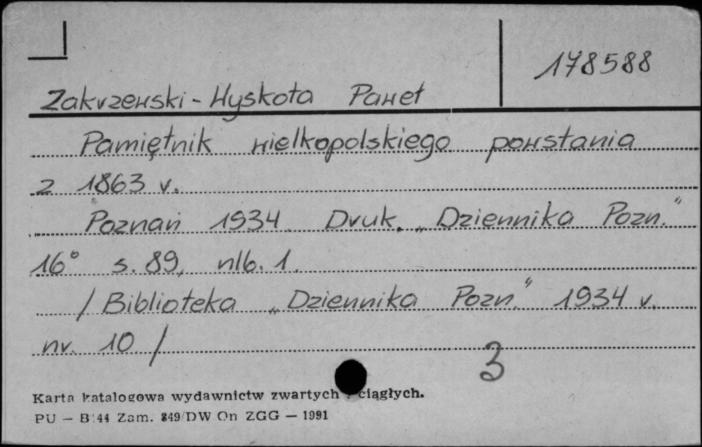 178588
Zakrzewski-Wyskota Paweł
Pamiętnik wielkopolskiego powstania
z 1863 r.
Poznań 1934. Druk. „Dziennika Pozn."
16° s. 89, nlb. 1.
/ Biblioteka „Dziennika Pozn." 1934 r.
nr. 10 /
3
Karta katalogowa wydawnictw zwartych i ciągłych.
PU — B 44 Zam. 849/DW On ZGG — 1991